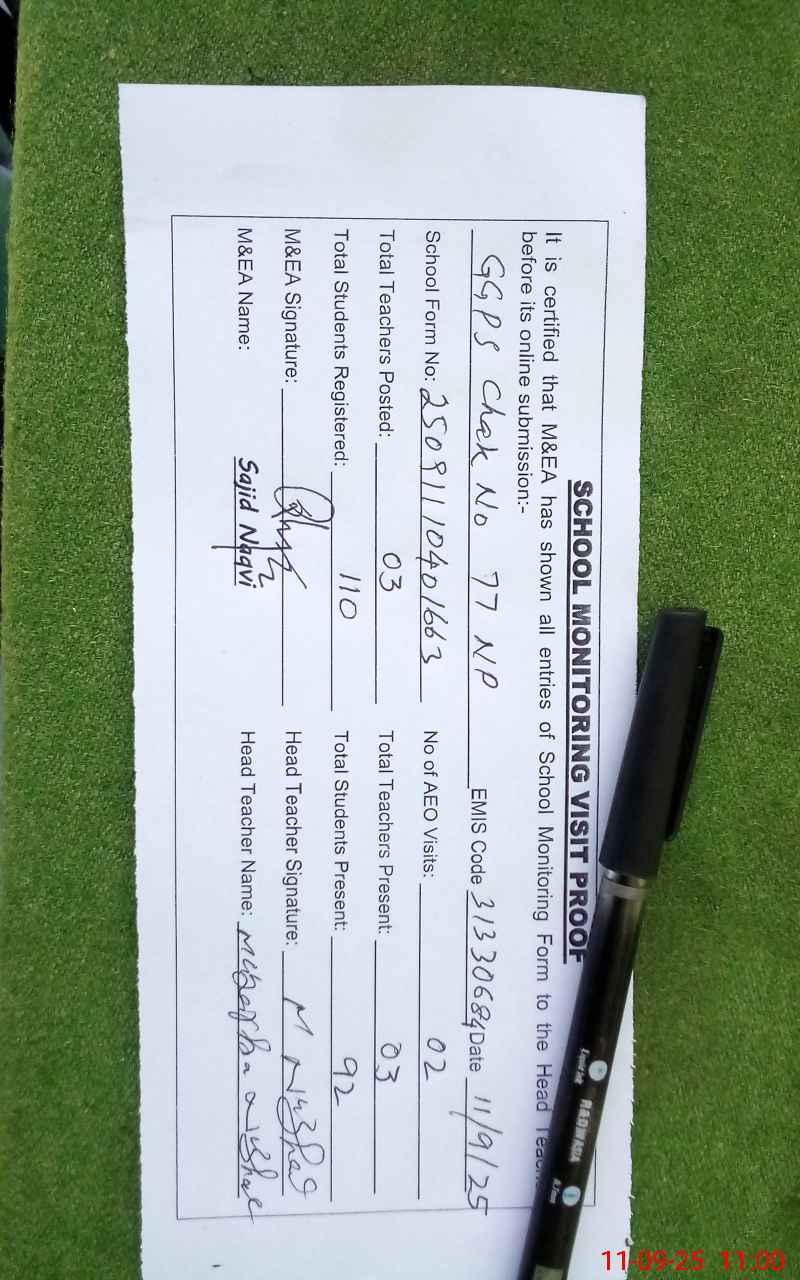 SCHOOL MONITORING VISIT PROOF
It is certified that M&EA has shown all entries of School Monitoring Form to the Head Teac
before its online submission:-
GGPS Chak No 77 NP EMIS Code 31330684 Date 11/9/25
School Form No: 25091110401663 No of AEO Visits: 02
Total Teachers Posted: 03 Total Teachers Present: 03
Total Students Registered: 110 Total Students Present: 92
M&EA Signature: Head Teacher Signature: M
M&EA Name: Sajid Naqvi Head Teacher Name:
11-09-25 11:00